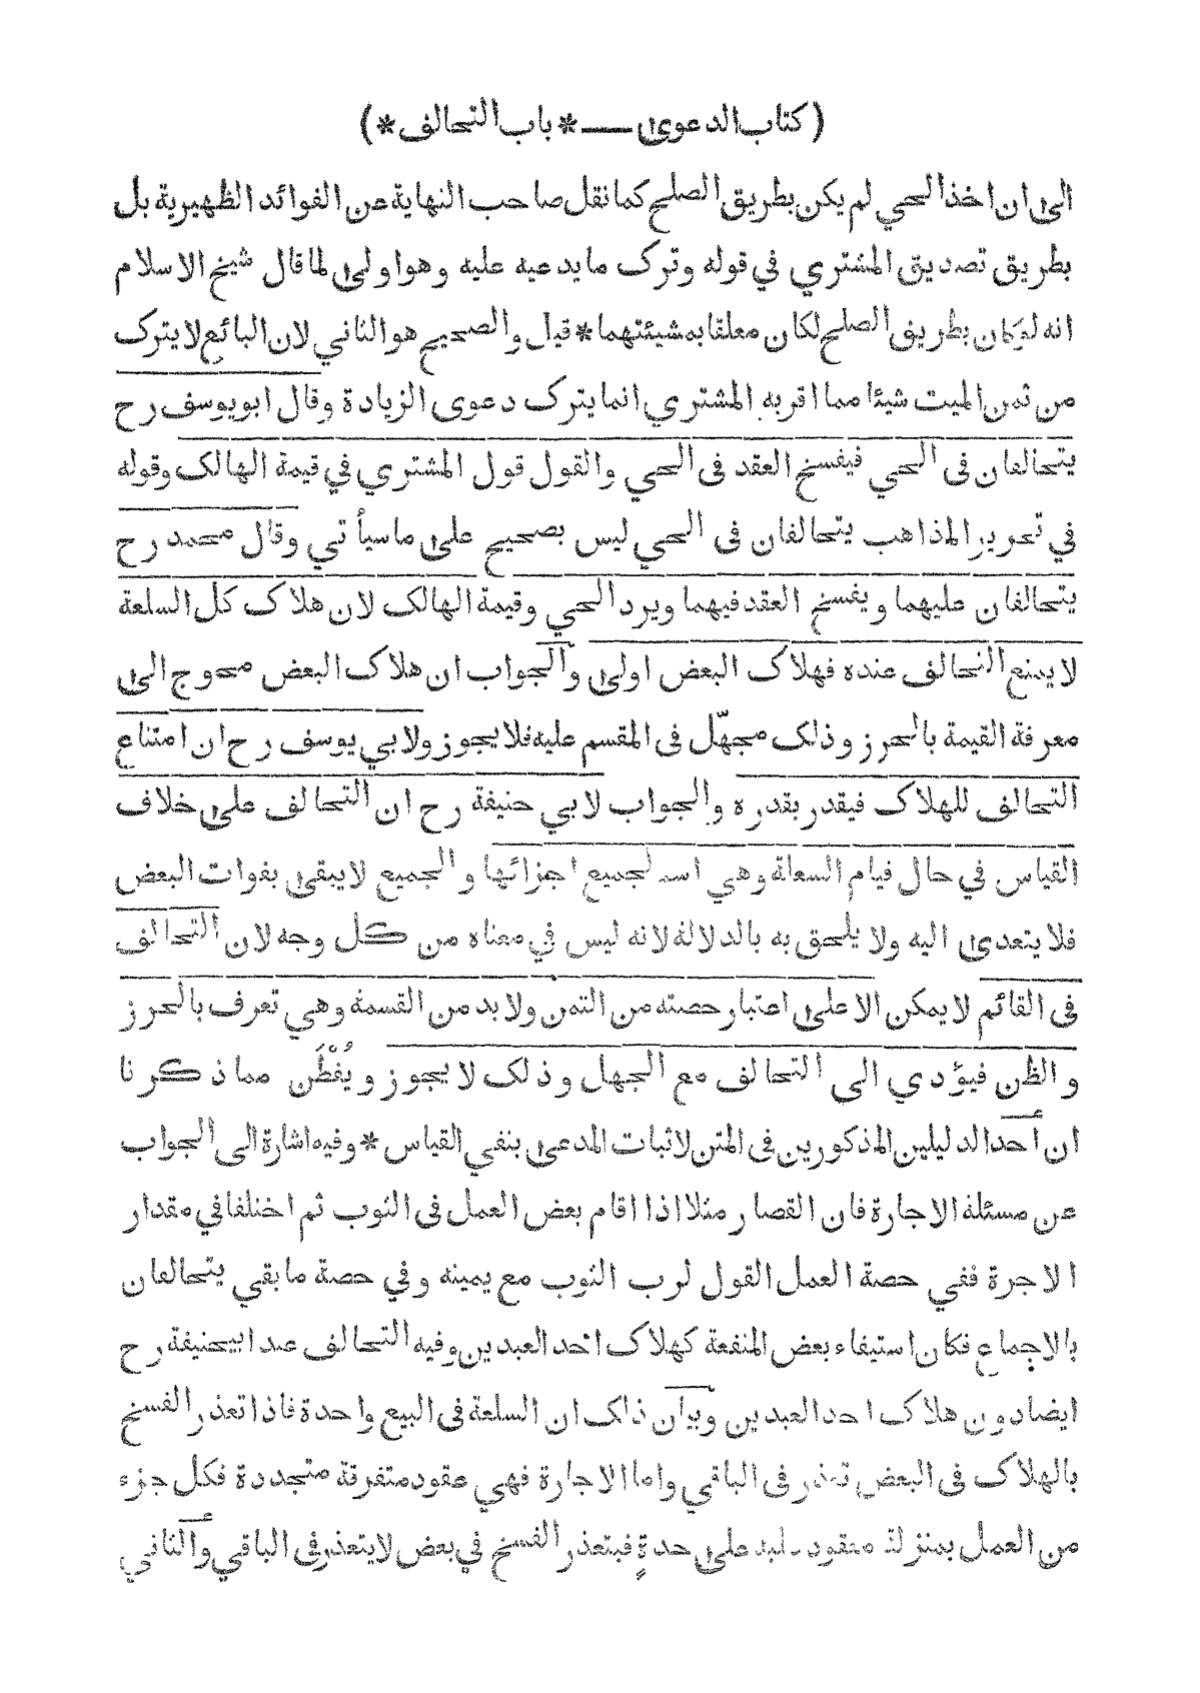 ( كتاب الدعوى ــــ * باب التحالف * )
الى ان اخذ الحي لم يكن بطريق الصلح كما نقل صاحب النهاية عن الفوائد الظهيرية بل
بطريق تصديق المشتري في قوله وترك ما يدعيه عليه وهو اولى لما قال شيخ الاسلام
انه لو كان بطريق الصلح لكان معلقا بمشيئتهما * قيل والصحيح هو الثاني لان البائع لا يترك
من ثمن الميت شيئا مما اقر به المشتري انما يترك دعوى الزيادة وقال ابو يوسف رح
يتحالفان فى الحي فيفسخ العقد فى الحي والقول قول المشتري في قيمة الهالك وقوله
في تحرير المذاهب يتحالفان فى الحي ليس بصحيح على ما سيأتي وقال محمد رح
يتحالفان عليهما ويفسخ العقد فيهما ويرد الحي وقيمة الهالك لان هلاك كل السلعة
لا يمنع التحالف عنده فهلاك البعض اولى والجواب ان هلاك البعض محوج الى
معرفة القيمة بالحرز وذلك مجهّل فى المقسم عليه فلا يجوز ولابي يوسف رح ان امتناع
التحالف للهلاك فيقدر بقدره والجواب لابي حنيفة رح ان التحالف على خلاف
القياس في حال قيام السعلة وهي اسم لجميع اجزائها والجميع لا يبقى بفوات البعض
فلا يتعدى اليه ولا يلحق به بالدلالة لانه ليس في معناه من كل وجه لان التحالف
فى القائم لا يمكن الا على اعتبار حصته من الثمن ولا بد من القسمة وهي تعرف بالحرز
والظن فيؤدي الى التحالف مع الجهل وذلك لا يجوز ويُفْطَن مما ذكرنا
ان أحد الدليلين المذكورين فى المتن لاثبات المدعى بنفي القياس * وفيه اشارة الى الجواب
عن مسئلة الاجارة فان القصار مثلا اذا اقام بعض العمل فى الثوب ثم اختلفا في مقدار
الاجرة ففي حصة العمل القول لرب الثوب مع يمينه وفي حصة ما بقي يتحالفان
بالاجماع فكان استيفاء بعض المنفعة كهلاك احد العبدين وفيه التحالف عند ابيحنيفة رح
ايضا دون هلاك احد العبدين وبيان ذلك ان السلعة فى البيع واحدة فاذا تعذر الفسخ
بالهلاك فى البعض تعذر فى الباقي واما الاجارة فهي عقود متفرقة متجددة فكل جزء
من العمل بمنزلة معقود عليه على حدةٍ فبتعذر الفسخ في بعض لا يتعذر فى الباقي والثاني